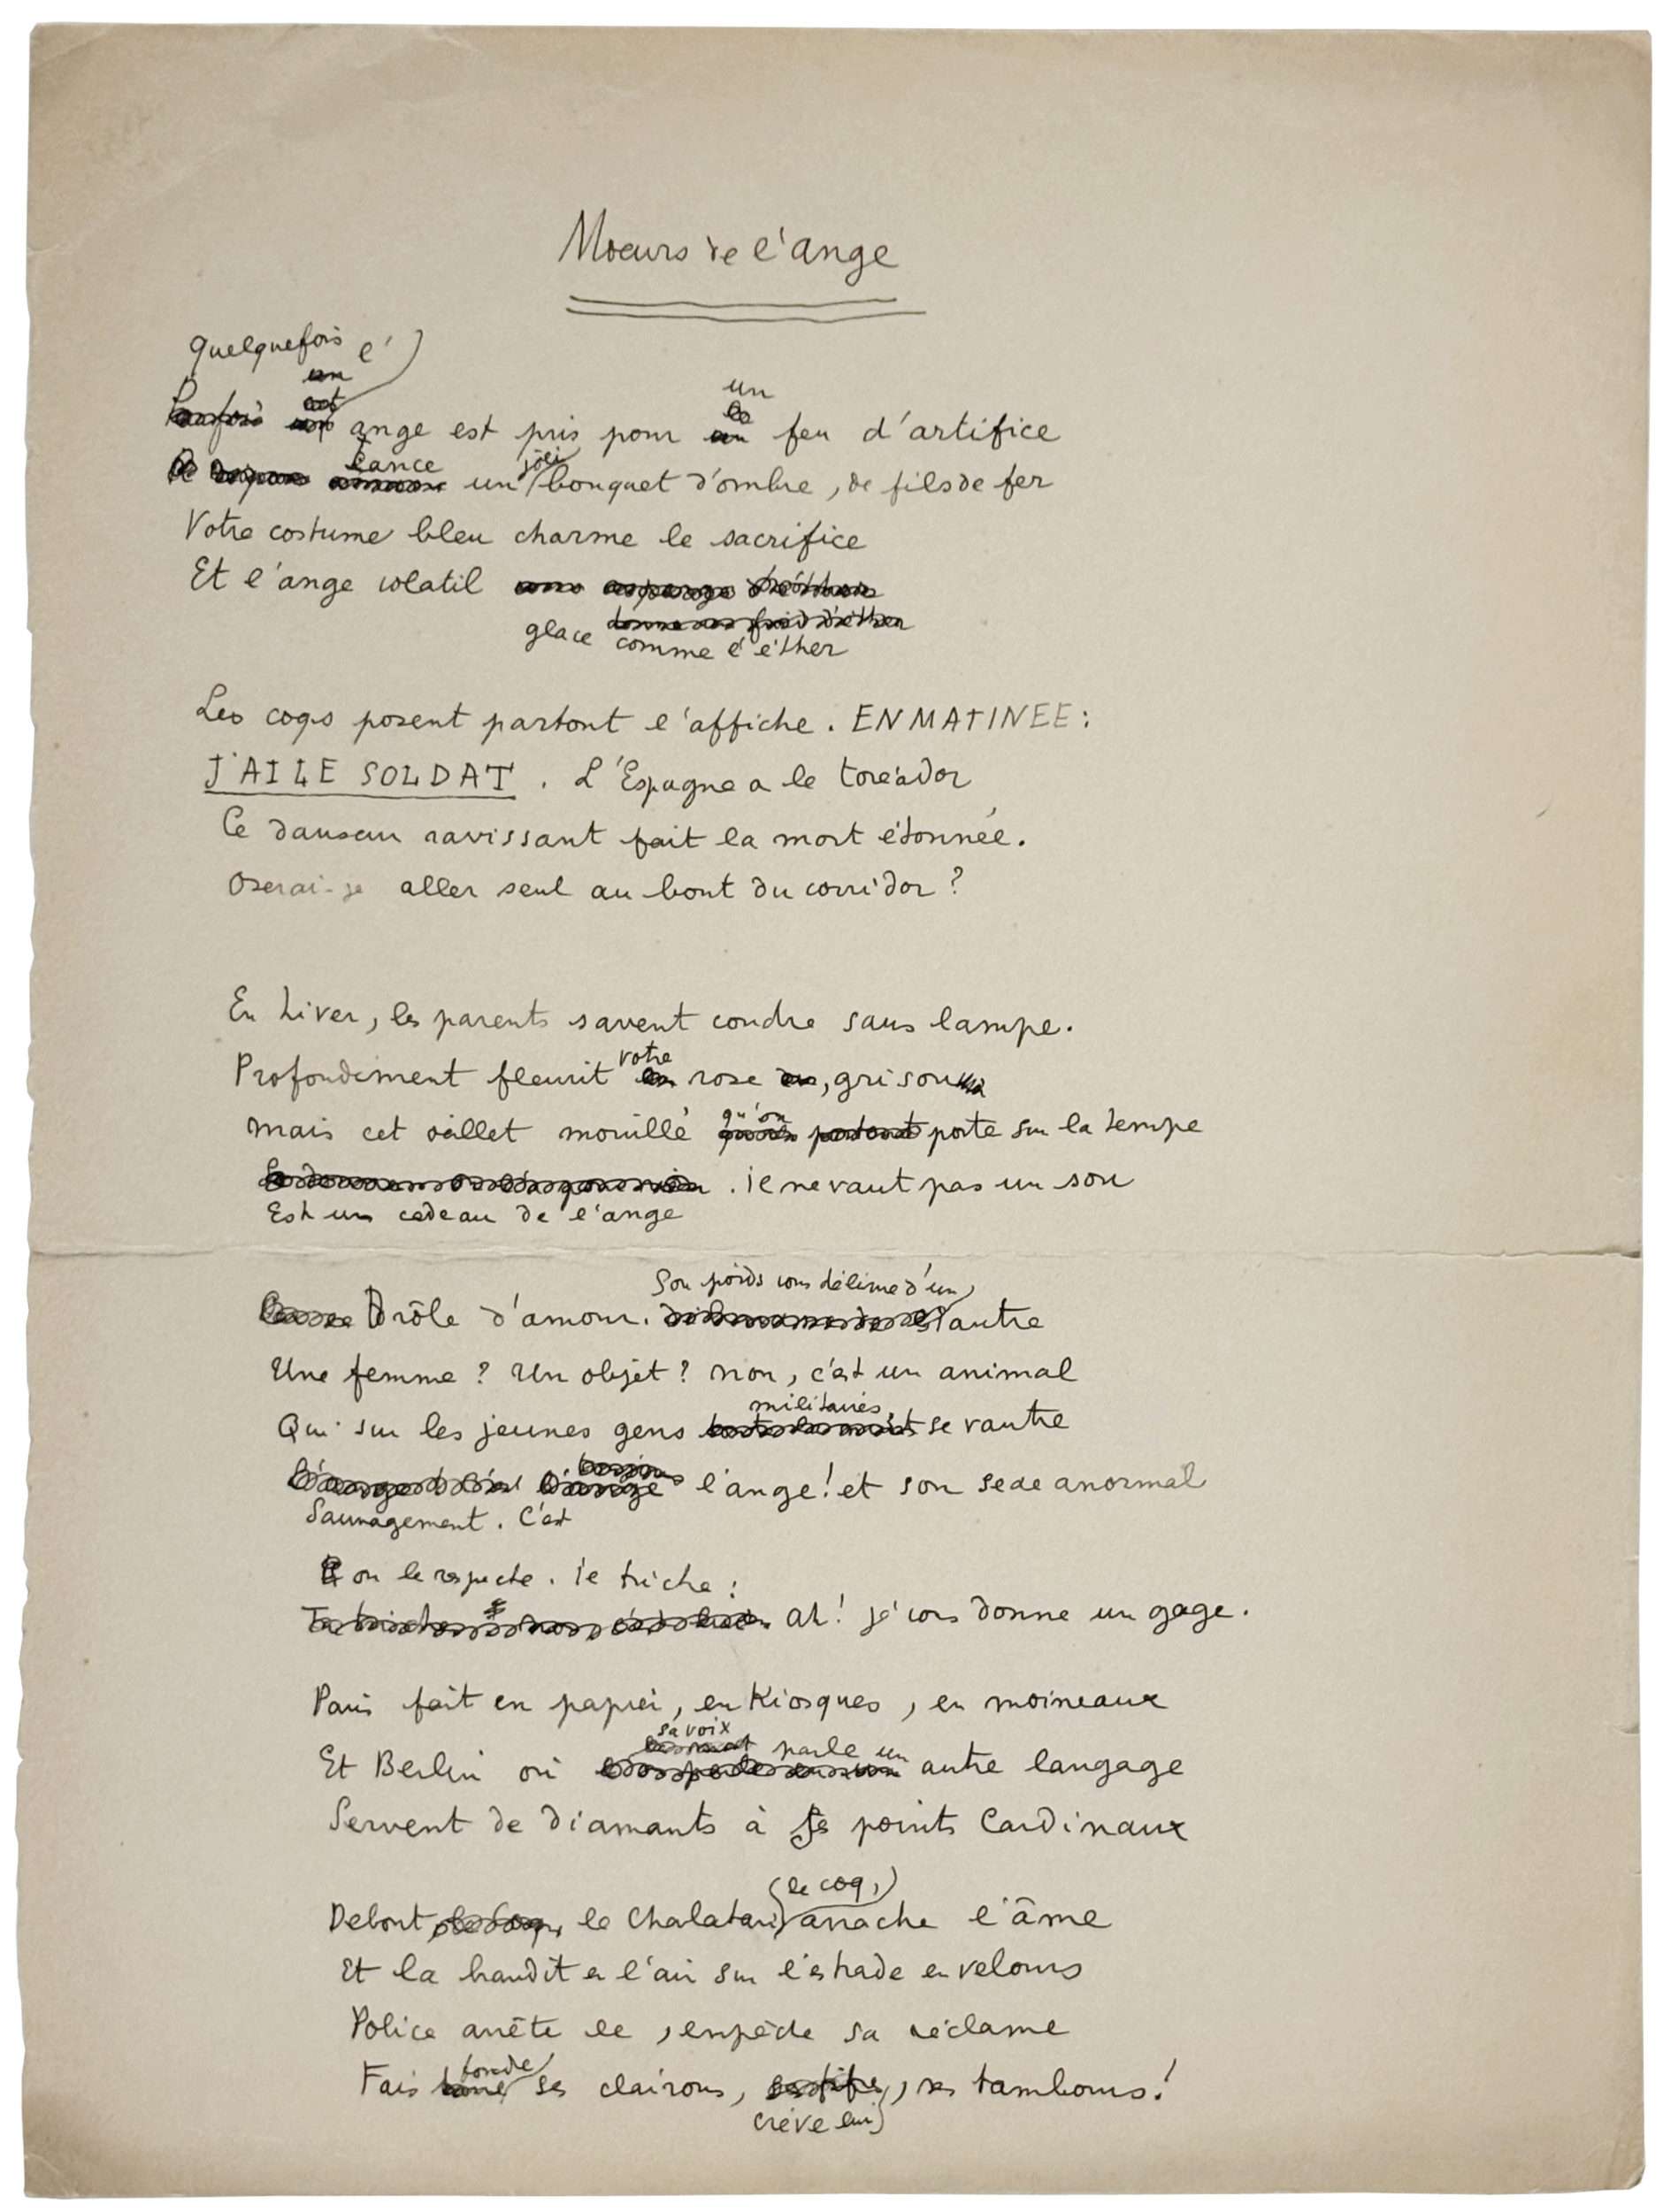 Moeurs de l'ange
Quelquefois l'
un
Parfois ange est pris pour un feu d'artifice
lance un joli bouquet d'ombre, de fils de fer
Votre costume bleu charme le sacrifice
Et l'ange volatil
glace comme l'éther
Les coqs posent partout l'affiche. EN MATINEE :
J'AI LE SOLDAT. L'Espagne a le toréador
Ce danseur ravissant fait la mort étonnée.
Oserai-je aller seul au bout du corridor ?
En hiver, les parents savent coudre sans lampe.
Profondément fleurit votre rose, grisou
mais cet œillet mouillé qu'on porte sur la tempe
. il ne vaut pas un sou
Est un cadeau de l'ange
Son poids vous délivre d'un
Drôle d'amour. autre
Une femme ? Un objet ? non, c'est un animal
militaires
Qui sur les jeunes gens se vautre
l'ange ! et son sexe anormal
Sauvagement. C'est
on le respecte. il triche :
Ah ! je vous donne un gage.
Paris fait en papier, en Kiosques, en moineaux
sa voix
Et Berlin où parle un autre langage
Servent de diamants à ses points Cardinaux
(le coq,)
Debout, le Chalatan arrache l'âme
Et la brandit en l'air sur l'estrade en velours
Police arrête le, empêche sa réclame
Fais fondre ses clairons, ses tambours !
crève lui